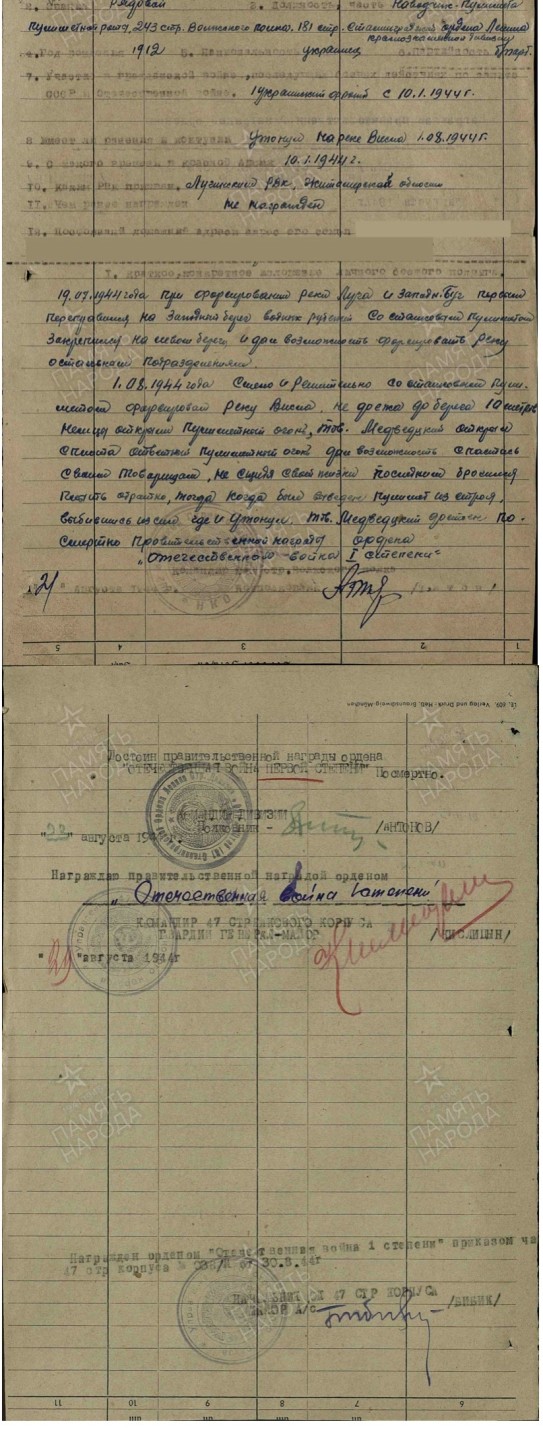 2. Звание Рядовой 3. Должность, часть Наводчик пулемета
пулеметной роты, 243 стр. полка, 181 стр. Сталинградской ордена Ленина
Краснознаменной дивизии
4. Год рождения 1912 5. Национальность украинец 6. Партийность б/парт.
7. Участие в гражданской войне, последующих боевых действиях по защите
СССР и Отечественной войне. 1 украинский фронт с 10.1.1944 г.
8 Имеет ли ранения и контузии Утонул на реке Висла 1.08.1944 г.
9. С какого времени в Красной Армии 10.1.1944 г.
10. Каким РВК призван Лугинский РВК, Житомирской области
11. Чем ранее награжден не награжден
12. Постоянный домашний адрес
I. Краткое, конкретное изложение личного боевого подвига
19.07.1944 года при форсировании реки Луга и Запад. Буг первым
переправился на Западный берег со станковым пулеметом
закрепился на левом берегу и дал возможность форсировать реку
остальным подразделениям.
1.08.1944 года Смело и решительно со станковым пуле-
метом форсировал реку Висла, не доезжа до берега 10 метров
немцы открыли пулеметный огонь, тов. Медведцкий открыл
ответный пулеметный огонь дав возможность спастись
своим товарищам, не щадя своей жизни последним бросился
плыть обратно, тогда когда был выведен пулемет из строя,
выбившись из сил где и утонул. тов. Медведцкий достоин по-
смертно Правительственной награды ордена
„Отечественная война I степени“
21 августа
5 4 3 2 1
Le. 809. Verlag und Druck
Достоин правительственной награды ордена
"ОТЕЧЕСТВЕННАЯ ВОЙНА ПЕРВОЙ СТЕПЕНИ" Посмертно.
КОМАНДИР ДИВИЗИИ
Полковник - /АНТОНОВ/
"22" августа 1944 г.
Награждаю правительственной наградой орденом
„Отечественная война I степени“
КОМАНДИР 47 СТРЕЛКОВОГО КОРПУСА
ГВАРДИИ ГЕНЕРАЛ-МАЙОР /ЧИСЛИЦЫН/
"29" августа 1944г
Награжден орденом "Отечественная война 1 степени" приказом ча
47 стр корпуса № 038/н от 30.8.44г
47 СТР КОРПУСА
МАЙОР А/С /БИБИК/
11 10 9 8 7 6
ПАМЯТЬ
НАРОДА